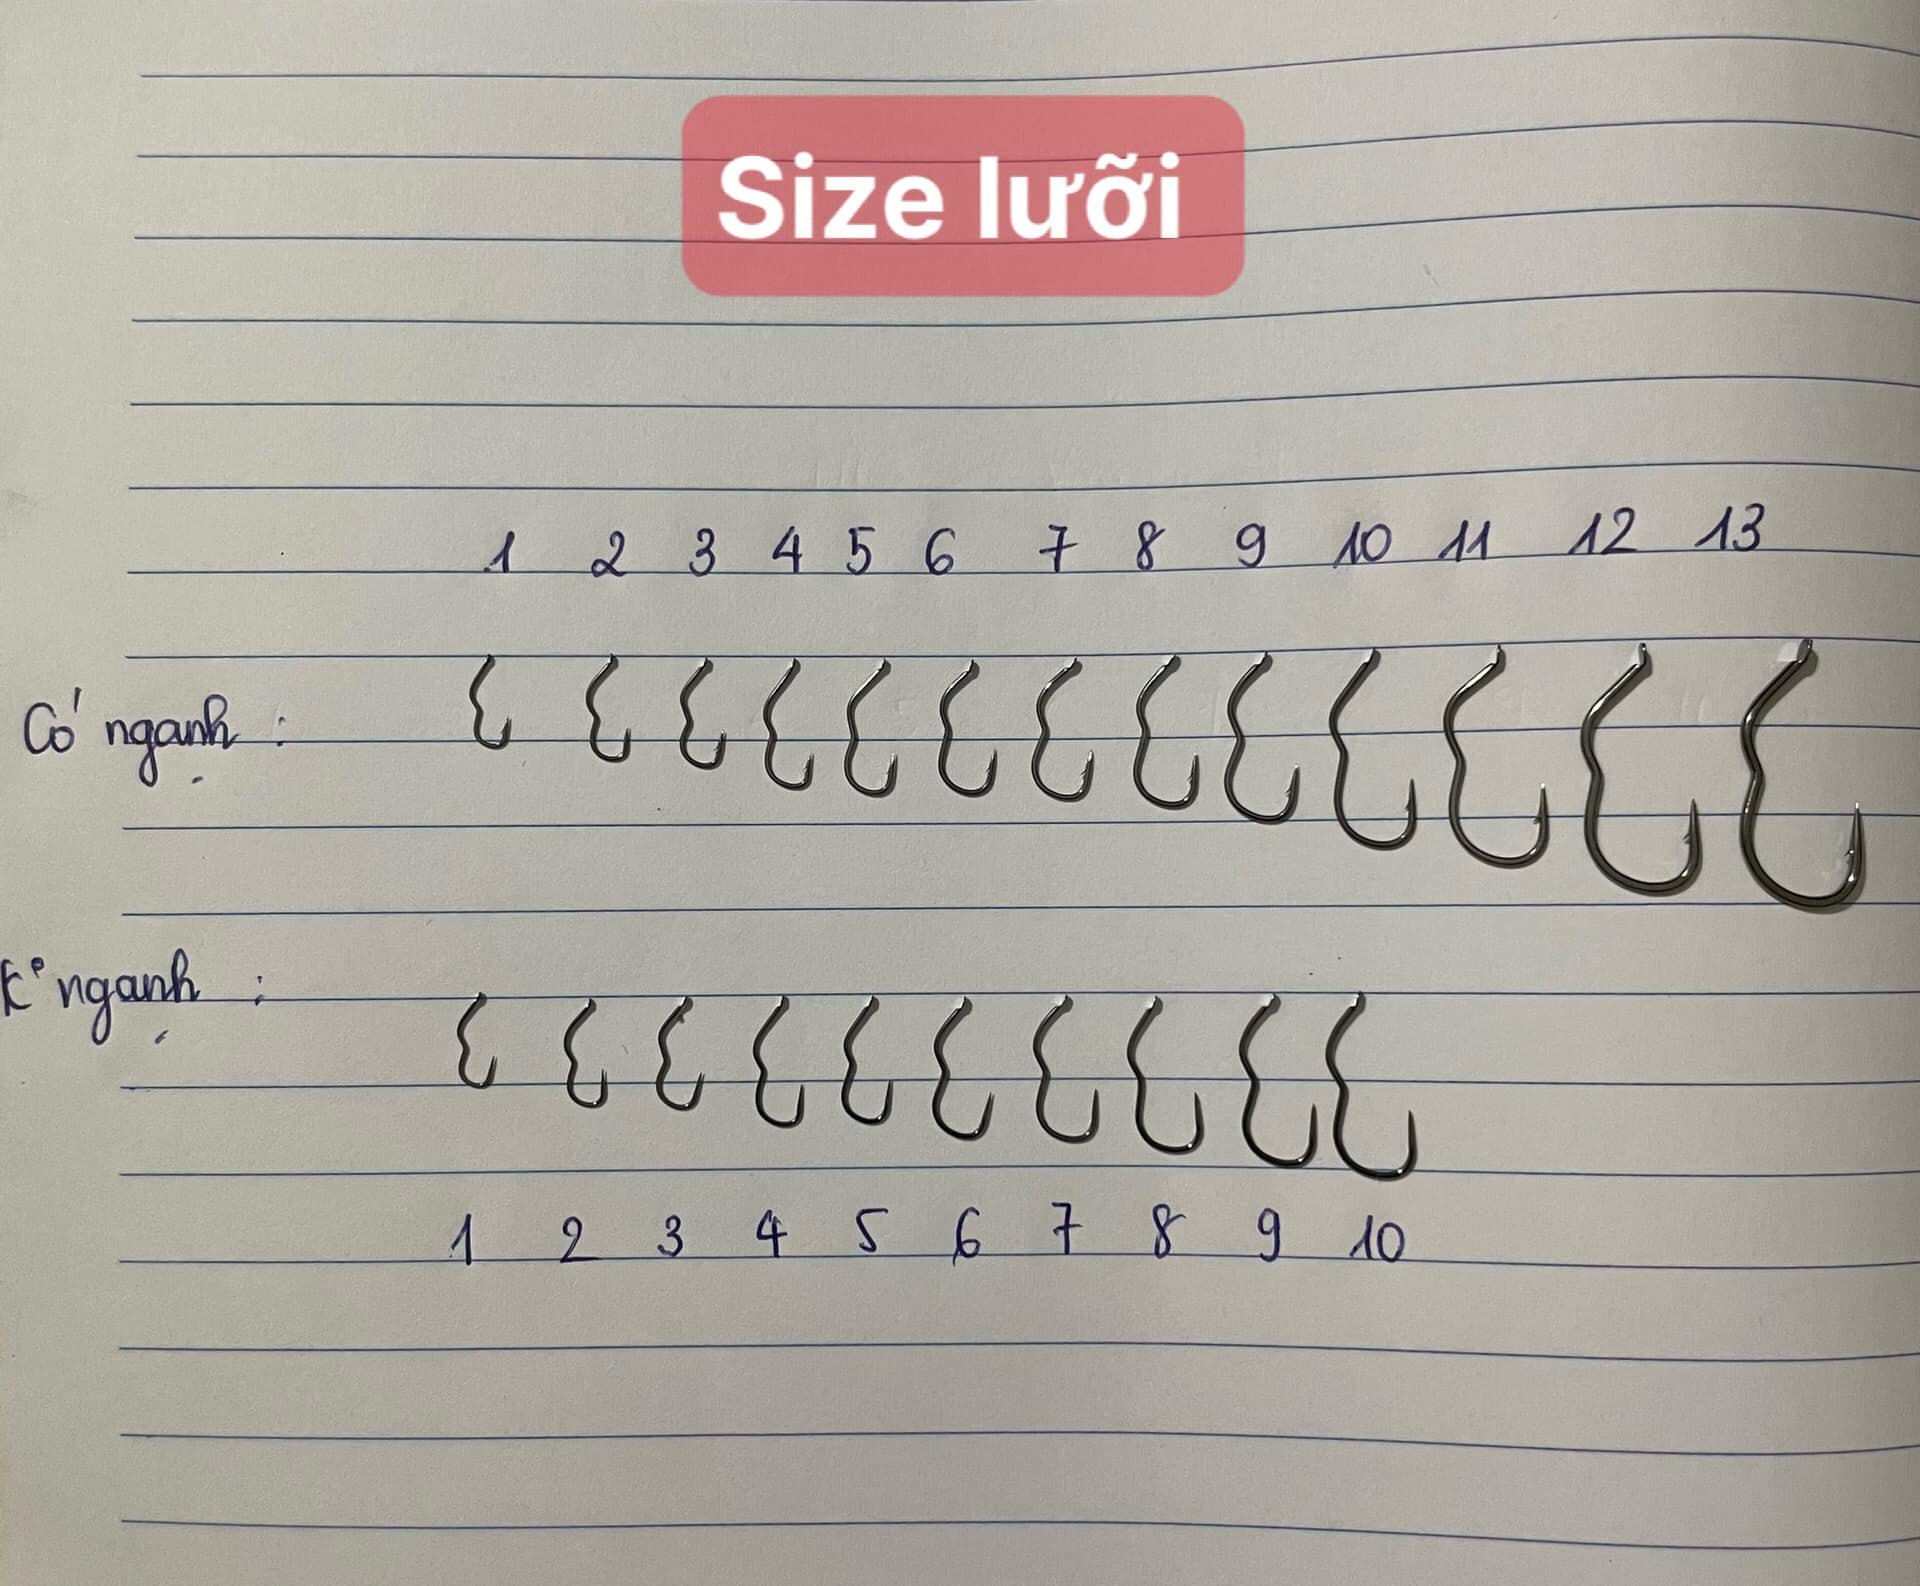 Size lưỡi
1 2 3 4 5 6 7 8 9 10 11 12 13
Có ngạnh :
K° ngạnh :
1 2 3 4 5 6 7 8 9 10